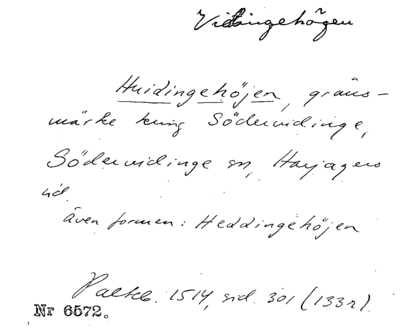 Vidingehögen
Huidingehöjen, gräns-
märke kring Södervidinge,
Södervidinge sn, Harjagers
hd.
även formen: Heddingehöjen
Palteb. 1514, sid. 301 (133r).
Nr 6572.